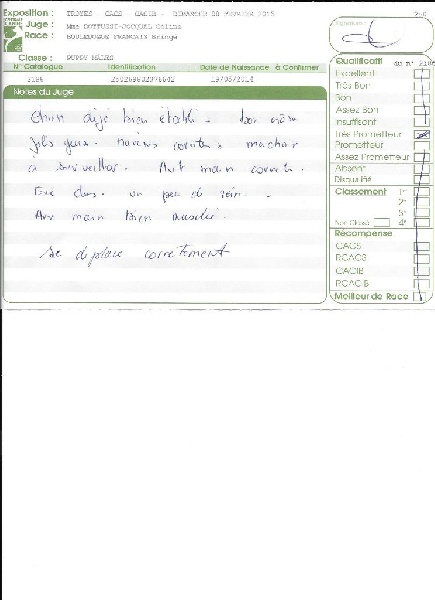 Exposition : TROYES CACS CACIB - DIMANCHE 08 FEVRIER 2015
Juge : Mme BOTTUSSI-JOCQUEL Céline
Race : BOULEDOGUE FRANCAIS Bringé
Classe : PUPPY MALES
N° Catalogue Identification Date de Naissance à Confirmer
2186 19/05/2014
Notes du Juge
Chien déjà bien établi. bon crâne
Jolis yeux. narines ouvertes machoire
à surveiller. Avt main correcte.
un peu de rein.
Arr main Bien musclée.
Se déplace correctement
Signature :
Qualificatif au n° 2186
Excellent
Très Bon
Bon
Assez Bon
Insuffisant
Très Prometteur
Prometteur
Assez Prometteur
Absent
Disqualifié
Classement 1°
2°
3°
Non Classé 4°
Récompense
CACS
RCACS
CACIB
RCACIB
Meilleur de Race